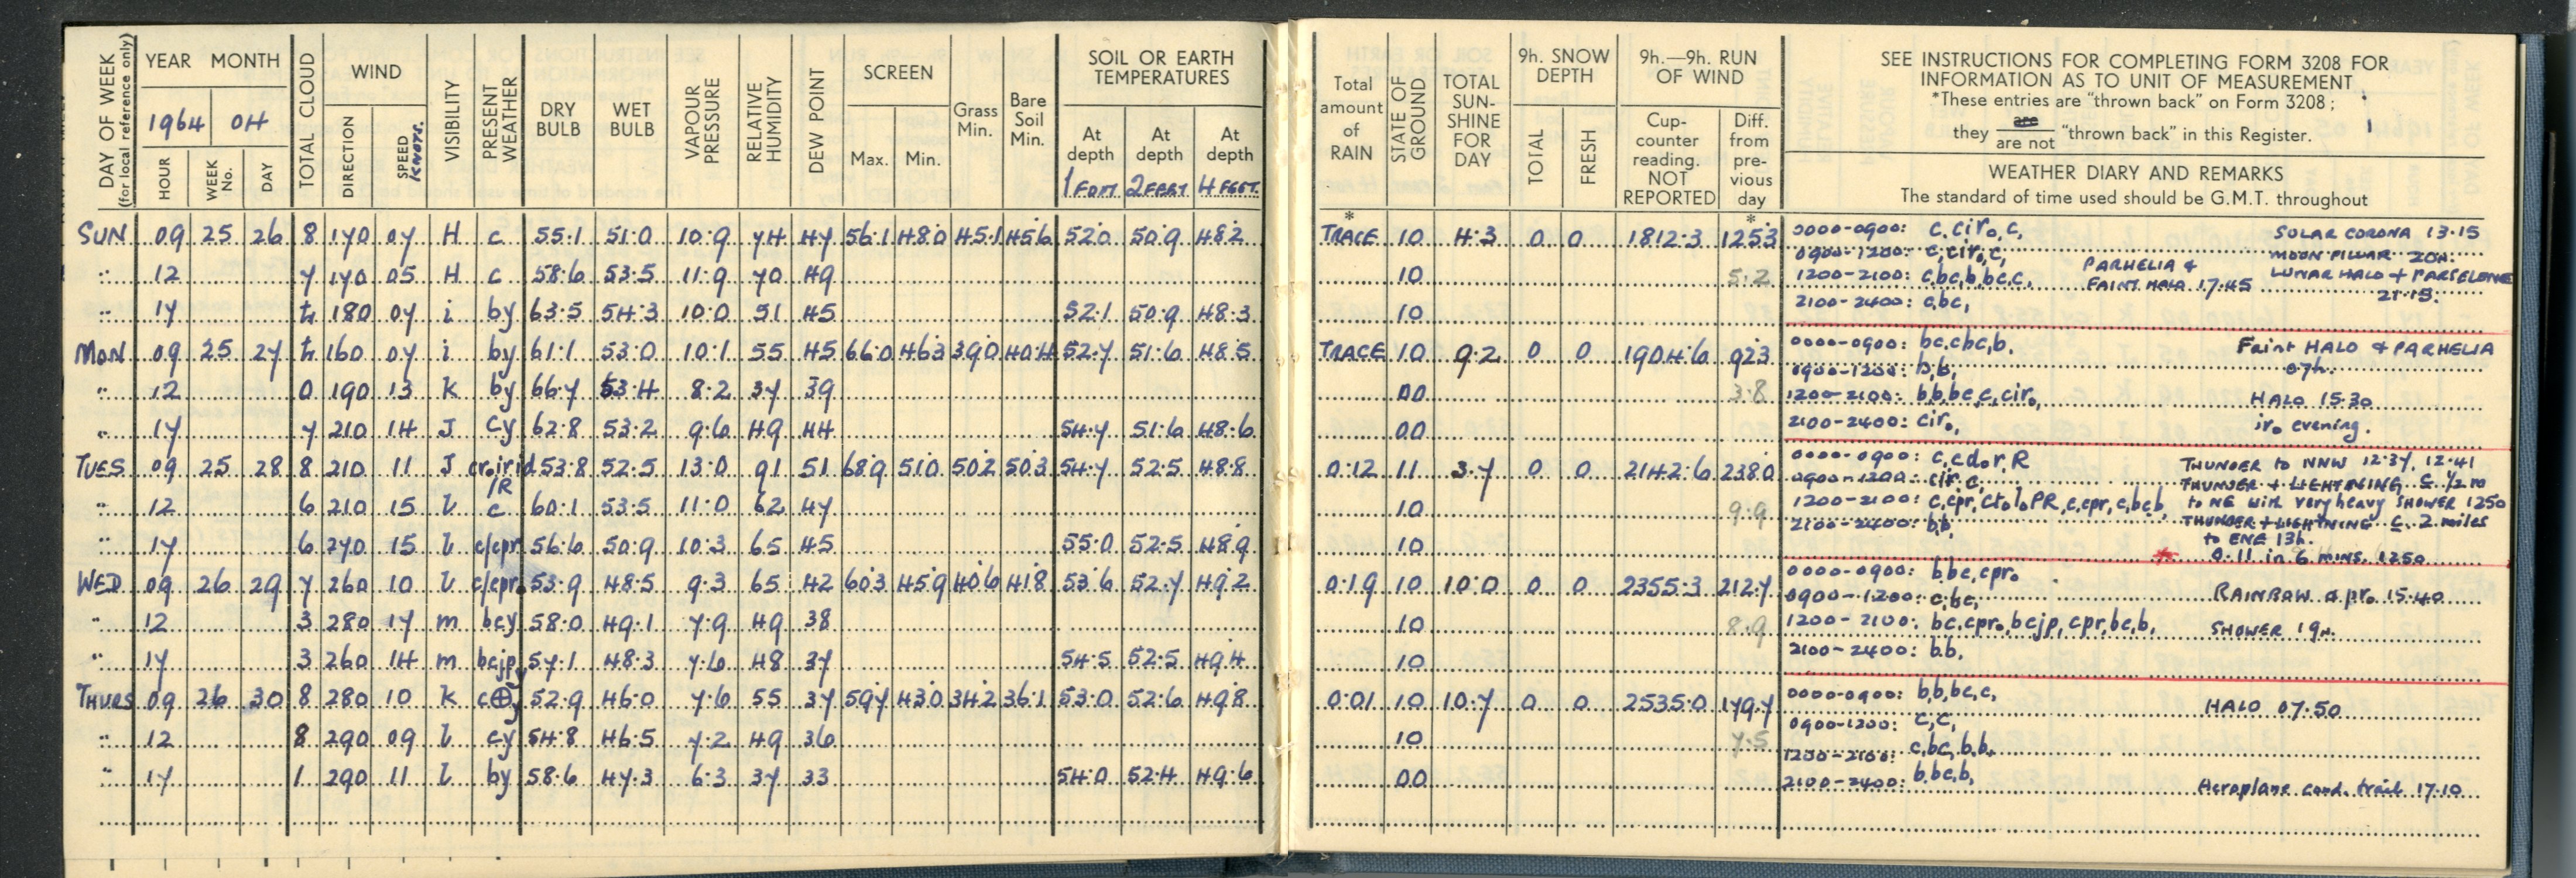 DAY OF WEEK (for local reference only)
YEAR MONTH
1964 04
HOUR WEEK No. DAY
TOTAL CLOUD
WIND
DIRECTION SPEED KNOTS.
VISIBILITY
PRESENT WEATHER
DRY BULB
WET BULB
VAPOUR PRESSURE
RELATIVE HUMIDITY
DEW POINT
SCREEN
Max. Min.
Grass Min.
Bare Soil Min.
SOIL OR EARTH TEMPERATURES
At depth 1 FOOT
At depth 2 FEET
At depth 4 FEET
SUN 09 25 26 8 170 07 H c 55.1 51.0 10.9 74 47 56.1 48.0 45.1 45.6 52.0 50.9 48.2
" 12 7 170 05 H c 58.6 53.5 11.9 70 49
" 17 180 07 i by 63.5 54.3 10.0 51 45 52.1 50.9 48.3
MON 09 25 27 160 07 i by 61.1 53.0 10.1 55 45 66.0 46.3 39.0 40.4 52.7 51.6 48.5
" 12 0 190 13 K by 66.7 53.4 8.2 37 39
" 17 7 210 14 J cy 62.8 53.2 9.6 49 44 54.7 51.6 48.6
TUES 09 25 28 8 210 11 J 53.8 52.5 13.0 91 51 68.9 51.0 50.2 50.3 54.7 52.5 48.8
/R
" 12 6 210 15 l c 60.1 53.5 11.0 62 47
" 17 6 270 15 l c/cpr 56.6 50.9 10.3 65 45 55.0 52.5 48.9
WED 09 26 29 7 260 10 l c/cpro 53.9 48.5 9.3 65 42 60.3 45.9 40.6 41.8 53.6 52.7 49.2
" 12 3 280 17 m bcy 58.0 49.1 7.9 49 38
" 17 3 260 14 m bcjp 57.1 48.3 7.6 48 37 54.5 52.5 49.4
THURS 09 26 30 8 280 10 K c⊕y 52.9 46.0 7.6 55 37 59.7 43.0 34.2 36.1 53.0 52.6 49.8
" 12 8 290 09 l cy 54.8 46.5 7.2 49 36
" 17 1 290 11 l by 58.6 47.3 6.3 37 33 54.0 52.4 49.6
Total amount of RAIN
STATE OF GROUND
TOTAL SUN-SHINE FOR DAY
9h. SNOW DEPTH
TOTAL FRESH
9h.—9h. RUN OF WIND
Cup-counter reading. NOT REPORTED
Diff. from pre-vious day
SEE INSTRUCTIONS FOR COMPLETING FORM 3208 FOR
INFORMATION AS TO UNIT OF MEASUREMENT
*These entries are "thrown back" on Form 3208;
they are / are not "thrown back" in this Register.
WEATHER DIARY AND REMARKS
The standard of time used should be G.M.T. throughout
* *
TRACE 10 4.3 0 0 1812.3 125.3 0000-0900: c,ciro,c, SOLAR CORONA 13.15
0900-1200: c,ciro,c, MOON PILLAR 20h.
10 5.2 1200-2100: c,bc,b,bc,c, PARHELIA & FAINT HALO 17.45 LUNAR HALO + PARSELENE 21.15.
10 2100-2400: c,bc,
TRACE 10 9.2 0 0 1904.6 92.3 0000-0900: bc,cbc,b, Faint HALO & PARHELIA
0900-1200: b,b, 07h.
00 3.8 1200-2100: b,b,bc,c,ciro, HALO 15.30
00 2100-2400: ciro, iro evening.
0.12 11 3.7 0 0 2142.6 238.0 0000-0900: c,cdo,r,R THUNDER to NNW 12.37, 12.41
0900-1200: cir,c, THUNDER + LIGHTNING C. 1/2 m
10 9.9 1200-2100: c,cpr,ctoloPR,c,cpr,c,bc,b, to NE with very heavy SHOWER 1250
2100-2400: b,b, THUNDER + LIGHTNING C. 2 miles
10 to ENE 13h.
* 0.11 in 6 MINS. 1250
0.19 10 10.0 0 0 2355.3 212.7 0000-0900: b,bc,cpro
0900-1200: c,bc, RAINBOW a pro 15.40
10 8.9 1200-2100: bc,cpro,bcjp,cpr,bc,b, SHOWER 19h.
10 2100-2400: b,b,
0.01 10 10.7 0 0 2535.0 179.7 0000-0900: b,b,bc,c, HALO 07.50
0900-1200: c,c,
10 7.5 1200-2100: c,bc,b,b,
00 2100-2400: b,bc,b, Aeroplane cond. trail 17.10